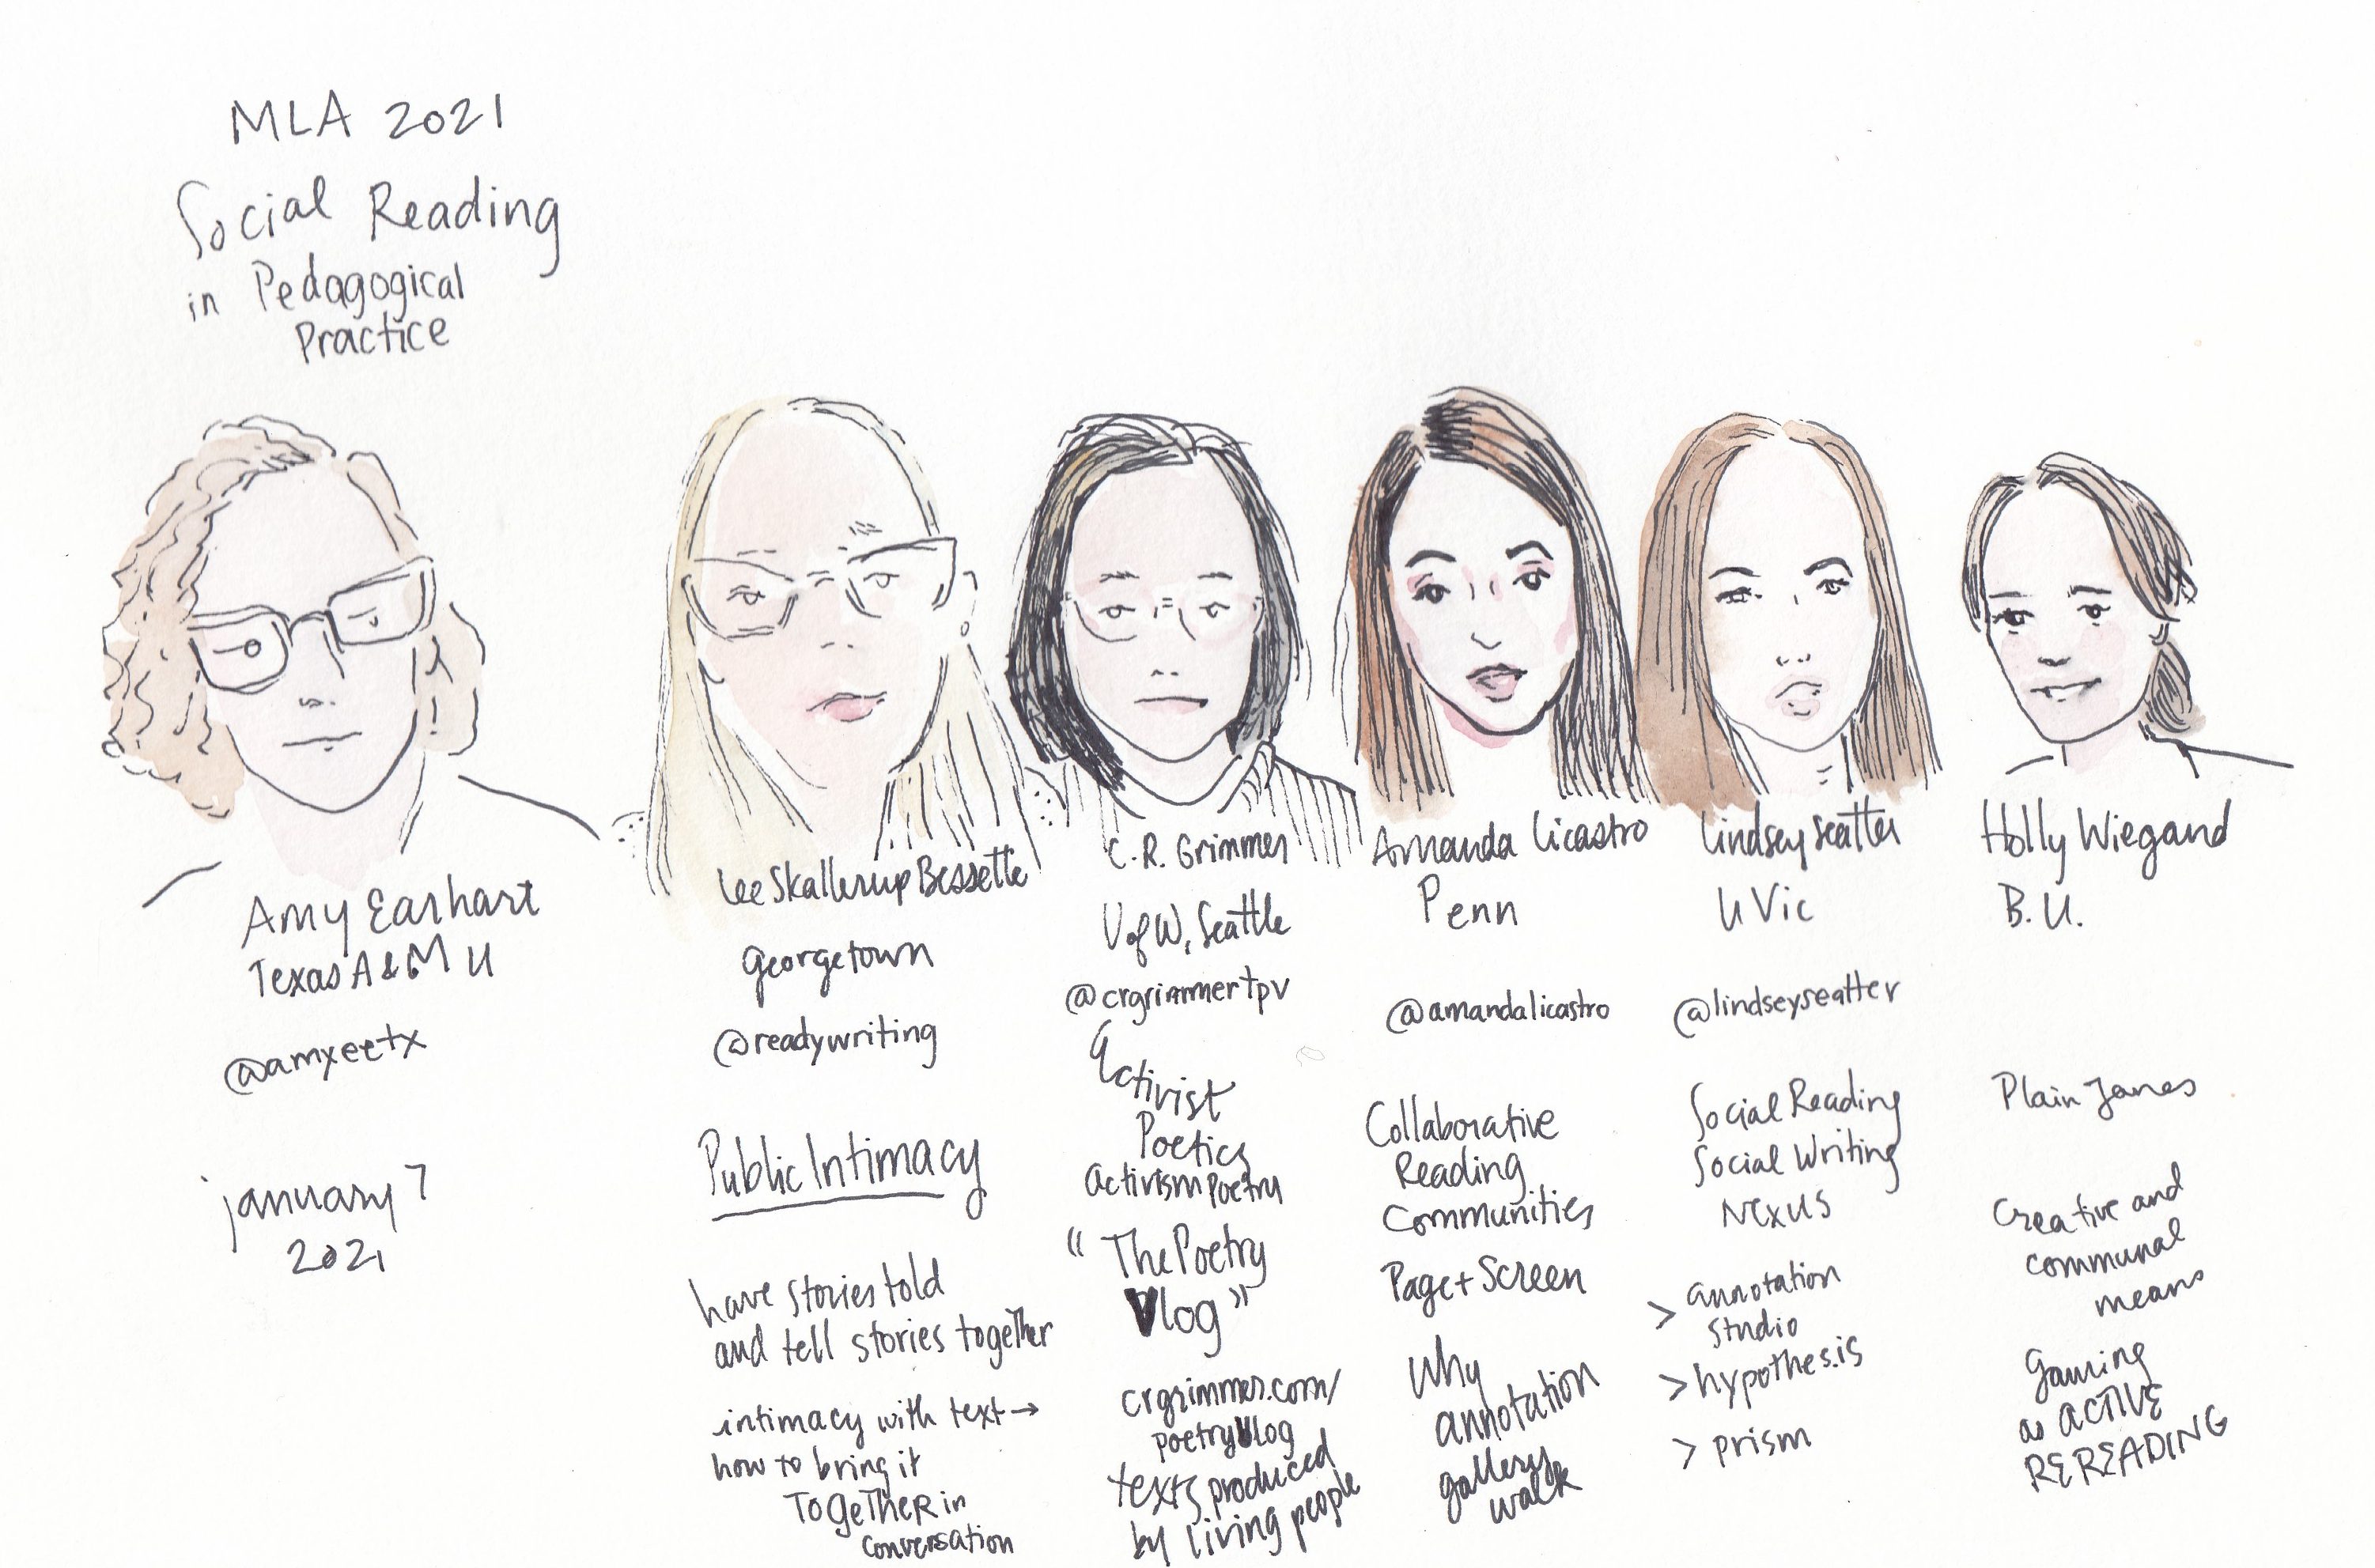 MLA 2021
Social Reading
in Pedagogical
Practice
Amy Earhart
Texas A&M U
@amyeetx
january 7
2021
Lee Skallerup Bessette
Georgetown
@readywriting
Public Intimacy
have stories told
and tell stories together
intimacy with text →
how to bring it
ToGeTHeR in
conversation
C.R. Grimmer
U of W, Seattle
@crgrimmertpv
Activist
Poetics
activism poetry
"The Poetry
Vlog"
crgrimmer.com/
poetryVlog
texts produced
by living people
Amanda Licastro
Penn
@amandalicastro
Collaborative
Reading
Communities
Page + Screen
Why
annotation
gallery
walk
Lindsey Seatter
UVic
@lindseyseatter
Social Reading
Social Writing
Nexus
> annotation
studio
> hypothes.is
> prism
Holly Wiegand
B.U.
Plain Janes
Creative and
communal
means
Gaming
as ACTIVE
REREADING